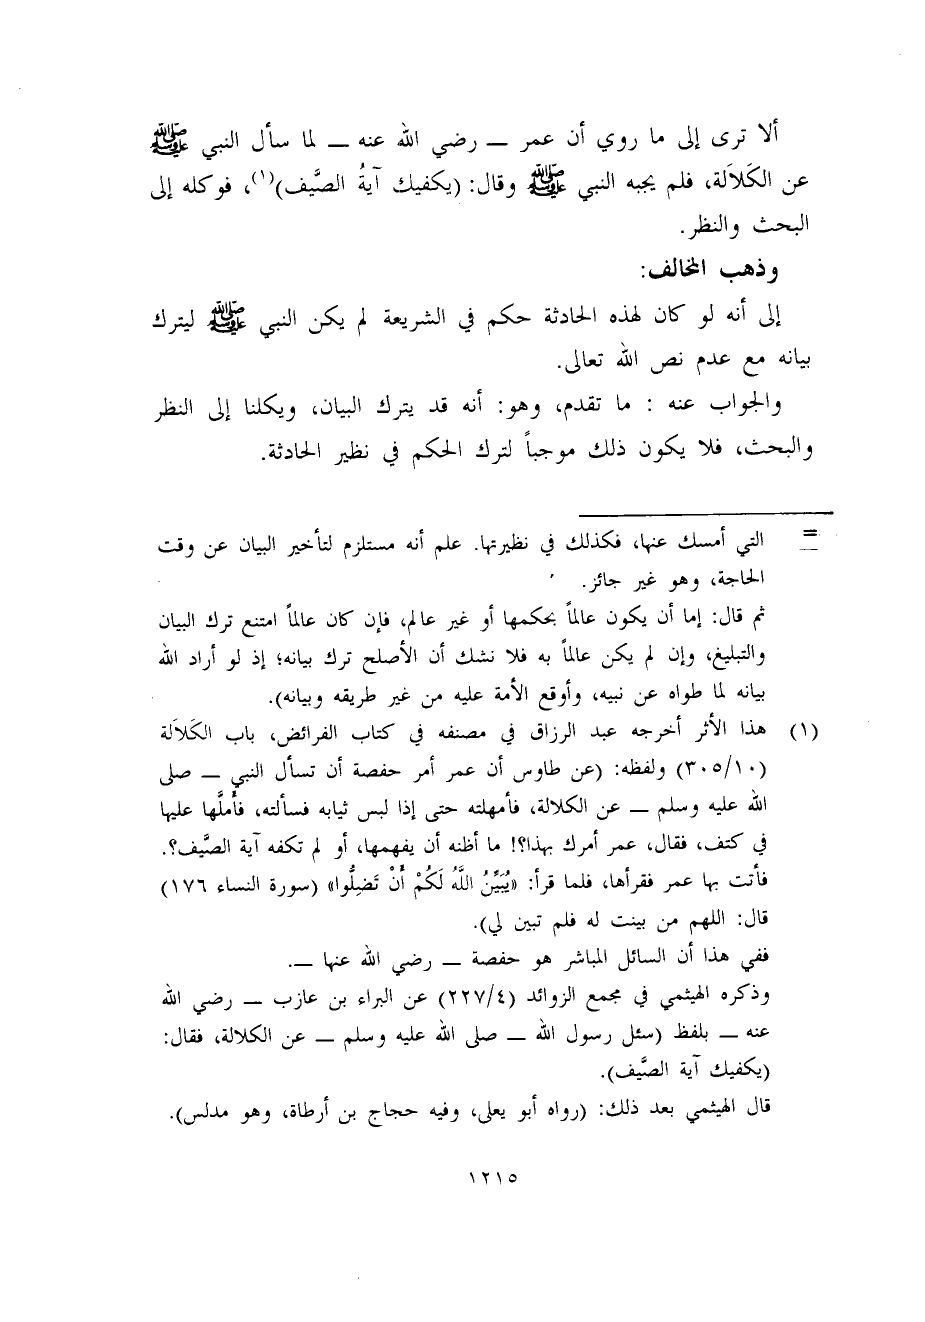 ألا ترى إلى ما روي أن عمر ــ رضي الله عنه ــ لما سأل النبي ﷺ
عن الكَلاَلة، فلم يجبه النبي ﷺ وقال: (يكفيك آيةُ الصَّيف)(١)، فوكله إلى
البحث والنظر.
وذهب المخالف:
إلى أنه لو كان لهذه الحادثة حكم في الشريعة لم يكن النبي ﷺ ليترك
بيانه مع عدم نص الله تعالى.
والجواب عنه : ما تقدم، وهو: أنه قد يترك البيان، ويكلنا إلى النظر
والبحث، فلا يكون ذلك موجباً لترك الحكم في نظير الحادثة.
= التي أمسك عنها، فكذلك في نظيرتها. علم أنه مستلزم لتأخير البيان عن وقت
الحاجة، وهو غير جائز.
ثم قال: إما أن يكون عالماً بحكمها أو غير عالم، فإن كان عالماً امتنع ترك البيان
والتبليغ، وإن لم يكن عالماً به فلا نشك أن الأصلح ترك بيانه؛ إذ لو أراد الله
بيانه لما طواه عن نبيه، وأوقع الأمة عليه من غير طريقه وبيانه).
(١) هذا الأثر أخرجه عبد الرزاق في مصنفه في كتاب الفرائض، باب الكَلاَلة
(٣٠٥/١٠) ولفظه: (عن طاوس أن عمر أمر حفصة أن تسأل النبي ــ صلى
الله عليه وسلم ــ عن الكلالة، فأمهلته حتى إذا لبس ثيابه فسألته، فأملَّها عليها
في كتف، فقال، عمر أمرك بهذا؟! ما أظنه أن يفهمها، أو لم تكفه آية الصَّيف؟.
فأتت بها عمر فقرأها، فلما قرأ: «يُبَيِّنُ اللَّهُ لَكُمْ أَنْ تَضِلُّوا» (سورة النساء ١٧٦)
قال: اللهم من بينت له فلم تبين لي).
ففي هذا أن السائل المباشر هو حفصة ــ رضي الله عنها ــ.
وذكره الهيثمي في مجمع الزوائد (٢٢٧/٤) عن البراء بن عازب ــ رضي الله
عنه ــ بلفظ (سئل رسول الله ــ صلى الله عليه وسلم ــ عن الكلالة، فقال:
(يكفيك آية الصَّيف).
قال الهيثمي بعد ذلك: (رواه أبو يعلى، وفيه حجاج بن أرطاة، وهو مدلس).
١٢١٥